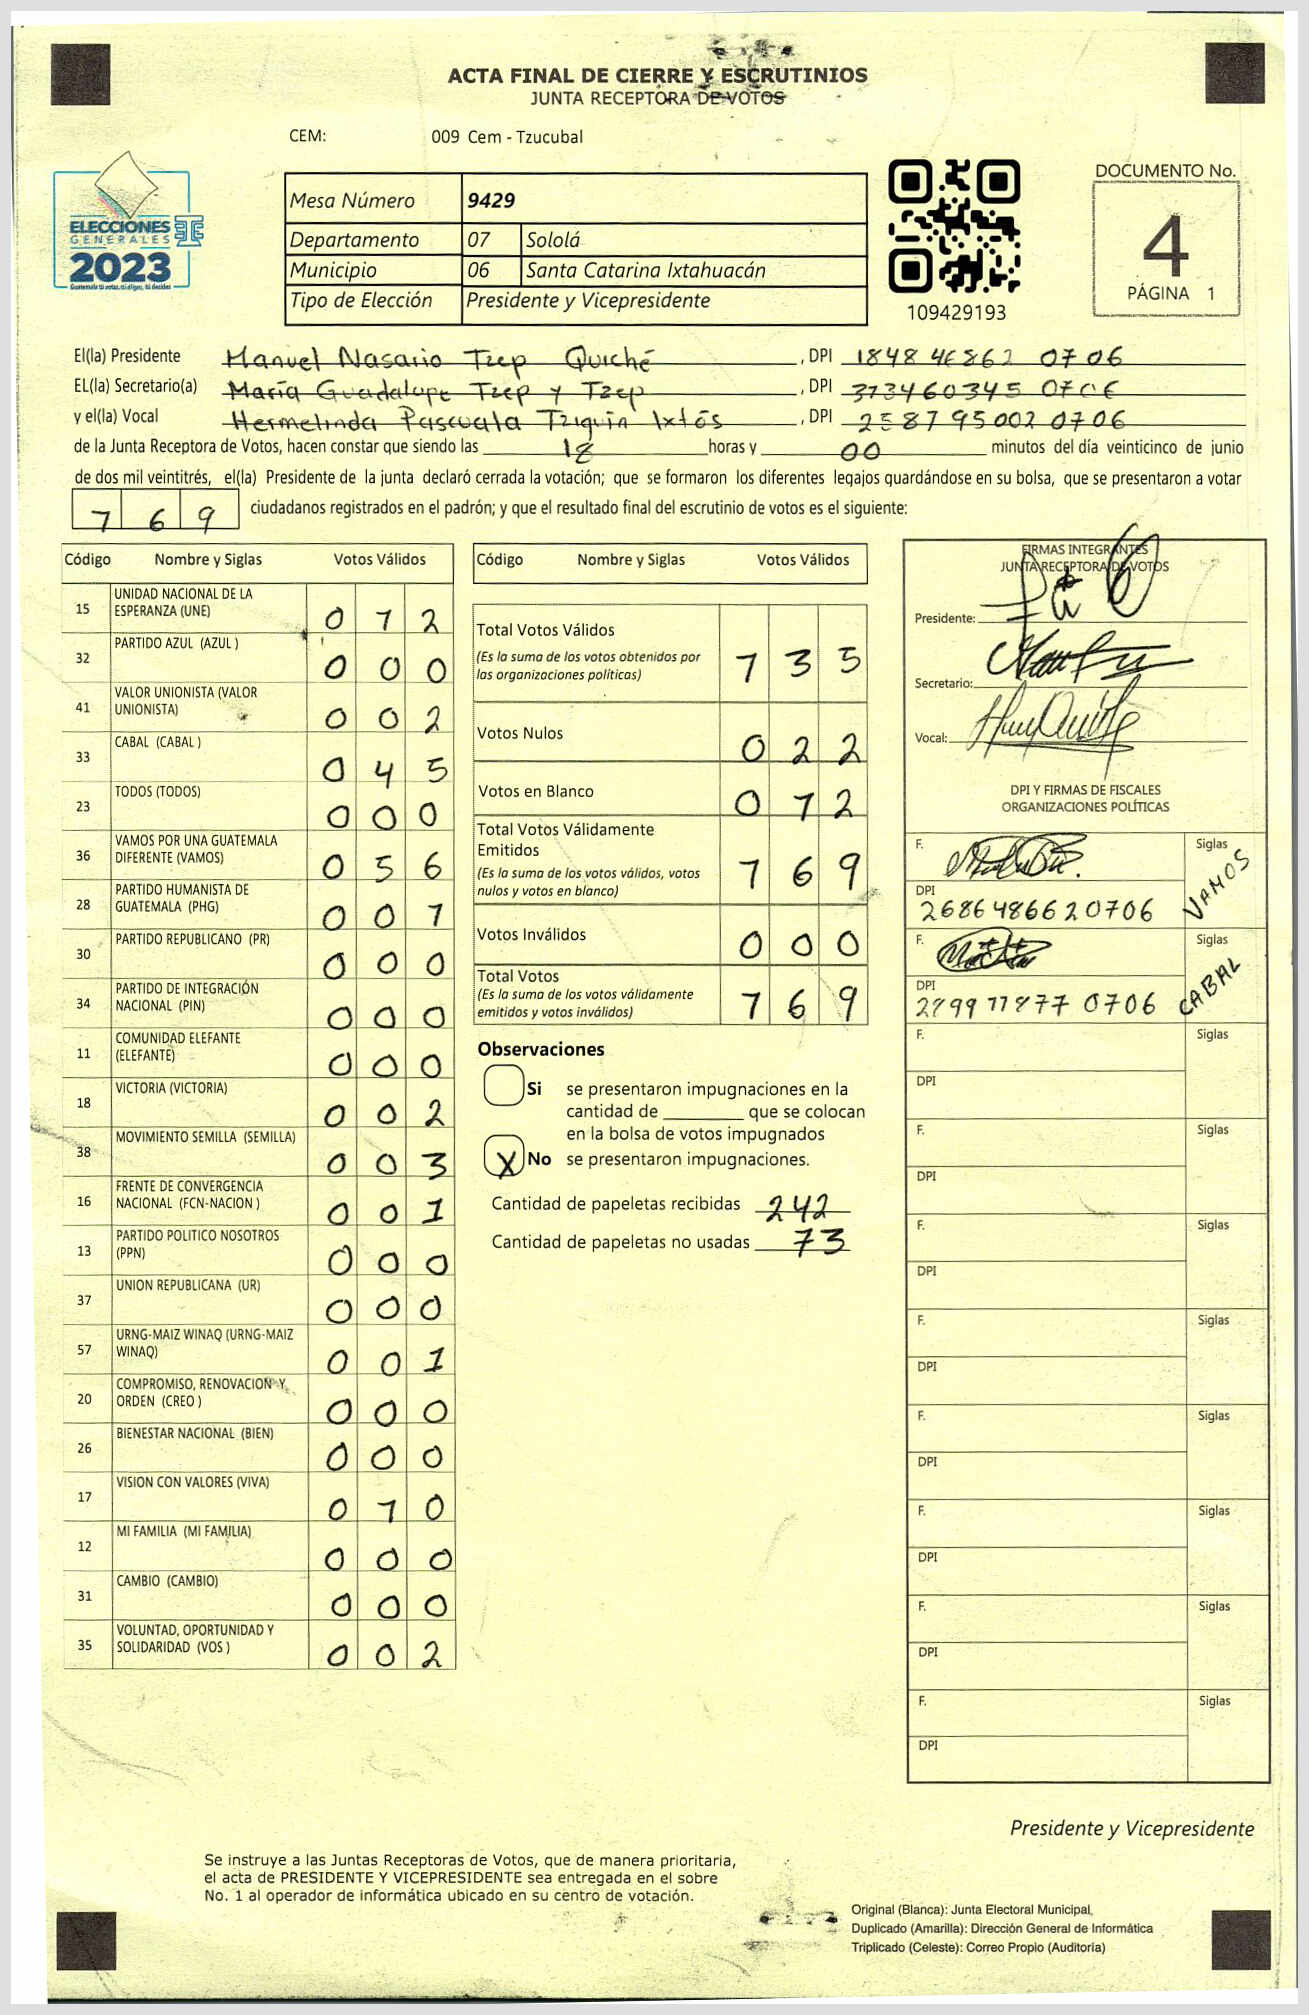 ACTA FINAL DE CIERRE Y ESCRUTINIOS
JUNTA RECEPTORA DE VOTOS
CEM: 009 Cem - Tzucubal
ELECCIONES
GENERALES
2023
Guatemala tú votas, tú eliges, tú decides
TSE
Mesa Número 9429
Departamento 07 Sololá
Municipio 06 Santa Catarina Ixtahuacán
Tipo de Elección Presidente y Vicepresidente
109429193
DOCUMENTO No.
4
PÁGINA 1
El(la) Presidente Manuel Nasario Tzep Quiché, DPI 1848 46862 0706
EL(la) Secretario(a) María Guadalupe Tzep y Tzep, DPI 373460345 0706
y el(la) Vocal Hermelinda Pascuala Tziquin Ixtós, DPI 258795002 0706
de la Junta Receptora de Votos, hacen constar que siendo las 18 horas y 00 minutos del día veinticinco de junio
de dos mil veintitrés, el(la) Presidente de la junta declaró cerrada la votación; que se formaron los diferentes legajos guardándose en su bolsa, que se presentaron a votar
769 ciudadanos registrados en el padrón; y que el resultado final del escrutinio de votos es el siguiente:
Código Nombre y Siglas Votos Válidos
15 UNIDAD NACIONAL DE LA ESPERANZA (UNE) 0 7 2
32 PARTIDO AZUL (AZUL ) 0 0 0
41 VALOR UNIONISTA (VALOR UNIONISTA) 0 0 2
33 CABAL (CABAL ) 0 4 5
23 TODOS (TODOS) 0 0 0
36 VAMOS POR UNA GUATEMALA DIFERENTE (VAMOS) 0 5 6
28 PARTIDO HUMANISTA DE GUATEMALA (PHG) 0 0 1
30 PARTIDO REPUBLICANO (PR) 0 0 0
34 PARTIDO DE INTEGRACIÓN NACIONAL (PIN) 0 0 0
11 COMUNIDAD ELEFANTE (ELEFANTE) 0 0 0
18 VICTORIA (VICTORIA) 0 0 2
38 MOVIMIENTO SEMILLA (SEMILLA) 0 0 3
16 FRENTE DE CONVERGENCIA NACIONAL (FCN-NACION ) 0 0 1
13 PARTIDO POLITICO NOSOTROS (PPN) 0 0 0
37 UNION REPUBLICANA (UR) 0 0 0
57 URNG-MAIZ WINAQ (URNG-MAIZ WINAQ) 0 0 1
20 COMPROMISO, RENOVACION Y ORDEN (CREO ) 0 0 0
26 BIENESTAR NACIONAL (BIEN) 0 0 0
17 VISION CON VALORES (VIVA) 0 1 0
12 MI FAMILIA (MI FAMILIA) 0 0 0
31 CAMBIO (CAMBIO) 0 0 0
35 VOLUNTAD, OPORTUNIDAD Y SOLIDARIDAD (VOS ) 0 0 2
Código Nombre y Siglas Votos Válidos
Total Votos Válidos 7 3 5
(Es la suma de los votos obtenidos por
las organizaciones políticas)
Votos Nulos 0 2 2
Votos en Blanco 0 1 2
Total Votos Válidamente
Emitidos 7 6 9
(Es la suma de los votos válidos, votos
nulos y votos en blanco)
Votos Inválidos 0 0 0
Total Votos 7 6 9
(Es la suma de los votos válidamente
emitidos y votos inválidos)
Observaciones
Si se presentaron impugnaciones en la
cantidad de ________ que se colocan
en la bolsa de votos impugnados
X No se presentaron impugnaciones.
Cantidad de papeletas recibidas 242
Cantidad de papeletas no usadas 73
FIRMAS INTEGRANTES
JUNTA RECEPTORA DE VOTOS
Presidente:
Secretario:
Vocal:
DPI Y FIRMAS DE FISCALES
ORGANIZACIONES POLÍTICAS
F. Siglas VAMOS
DPI
2686486620706
F. Siglas CABAL
DPI
2899778770706
F. Siglas
DPI
F. Siglas
DPI
F. Siglas
DPI
F. Siglas
DPI
F. Siglas
DPI
F. Siglas
DPI
F. Siglas
DPI
F. Siglas
DPI
Presidente y Vicepresidente
Se instruye a las Juntas Receptoras de Votos, que de manera prioritaria,
el acta de PRESIDENTE Y VICEPRESIDENTE sea entregada en el sobre
No. 1 al operador de informática ubicado en su centro de votación.
Original (Blanca): Junta Electoral Municipal,
Duplicado (Amarilla): Dirección General de Informática
Triplicado (Celeste): Correo Propio (Auditoría)